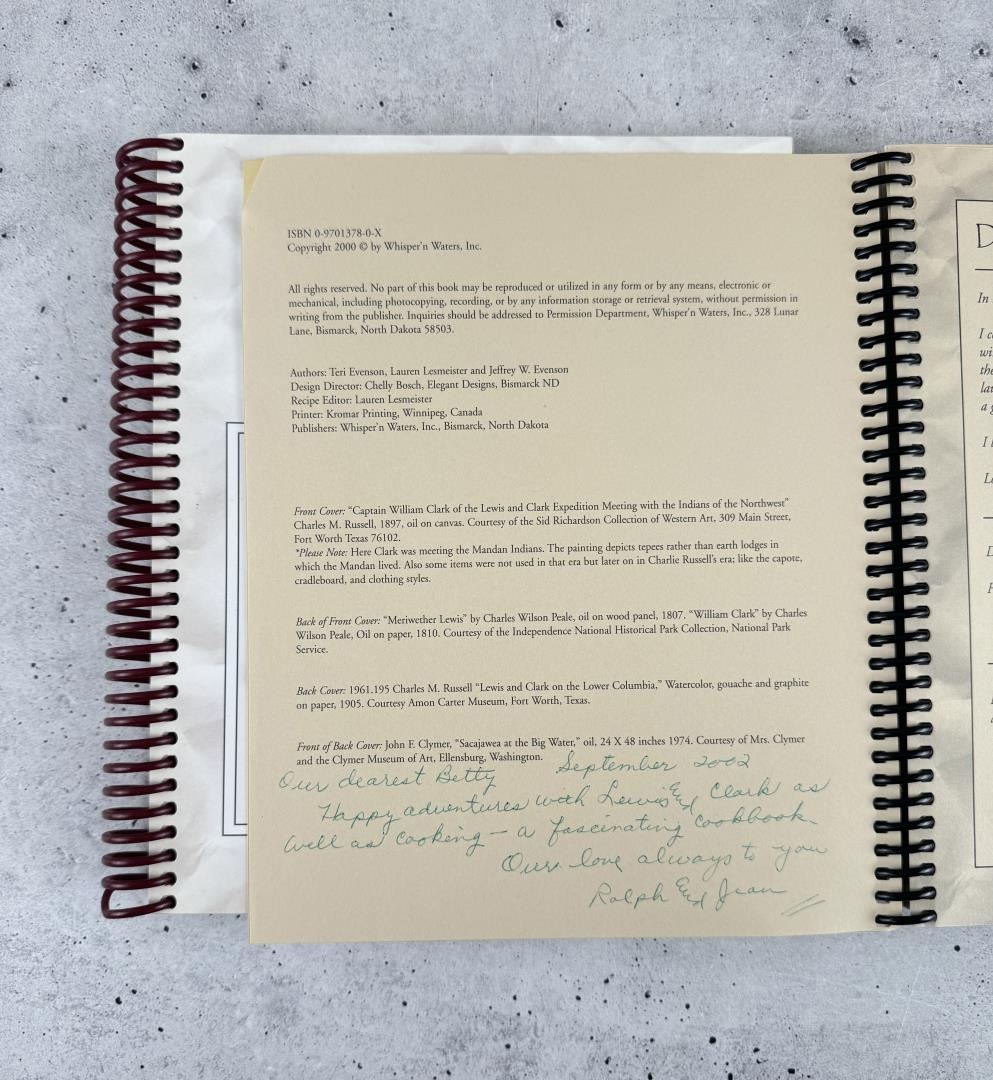 ISBN 0-9701378-0-X
Copyright 2000 © by Whisper'n Waters, Inc.
All rights reserved. No part of this book may be reproduced or utilized in any form or by any means, electronic or
mechanical, including photocopying, recording, or by any information storage or retrieval system, without permission in
writing from the publisher. Inquiries should be addressed to Permission Department, Whisper'n Waters, Inc., 328 Lunar
Lane, Bismarck, North Dakota 58503.
Authors: Teri Evenson, Lauren Lesmeister and Jeffrey W. Evenson
Design Director: Chelly Bosch, Elegant Designs, Bismarck ND
Recipe Editor: Lauren Lesmeister
Printer: Kromar Printing, Winnipeg, Canada
Publishers: Whisper'n Waters, Inc., Bismarck, North Dakota
Front Cover: "Captain William Clark of the Lewis and Clark Expedition Meeting with the Indians of the Northwest"
Charles M. Russell, 1897, oil on canvas. Courtesy of the Sid Richardson Collection of Western Art, 309 Main Street,
Fort Worth Texas 76102.
*Please Note: Here Clark was meeting the Mandan Indians. The painting depicts tepees rather than earth lodges in
which the Mandan lived. Also some items were not used in that era but later on in Charlie Russell's era; like the capote,
cradleboard, and clothing styles.
Back of Front Cover: "Meriwether Lewis" by Charles Wilson Peale, oil on wood panel, 1807. "William Clark" by Charles
Wilson Peale, Oil on paper, 1810. Courtesy of the Independence National Historical Park Collection, National Park
Service.
Back Cover: 1961.195 Charles M. Russell "Lewis and Clark on the Lower Columbia," Watercolor, gouache and graphite
on paper, 1905. Courtesy Amon Carter Museum, Fort Worth, Texas.
Front of Back Cover: John F. Clymer, "Sacajawea at the Big Water," oil, 24 X 48 inches 1974. Courtesy of Mrs. Clymer
and the Clymer Museum of Art, Ellensburg, Washington.
September 2002
Our dearest Betty
Happy adventures with Lewis and Clark as
well as cooking – a fascinating cookbook.
Our love always to you
Ralph and Jean
D
In
I